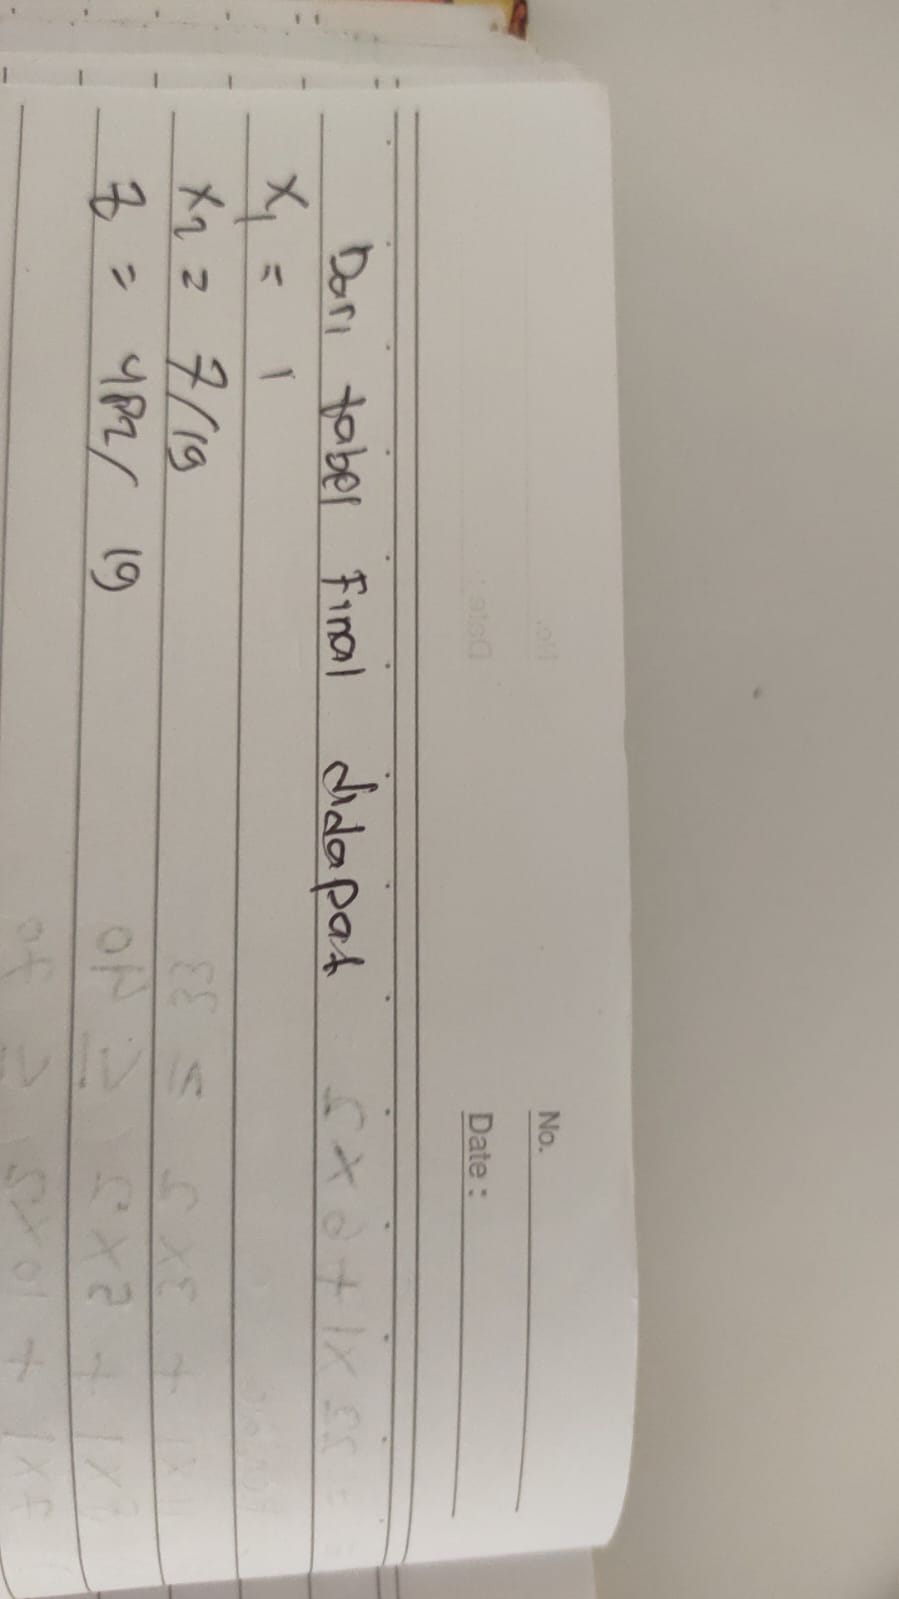 No.
Date :
Dari tabel Final didapat
x1 = 1
x2 = 7/19
z = 482/ 19